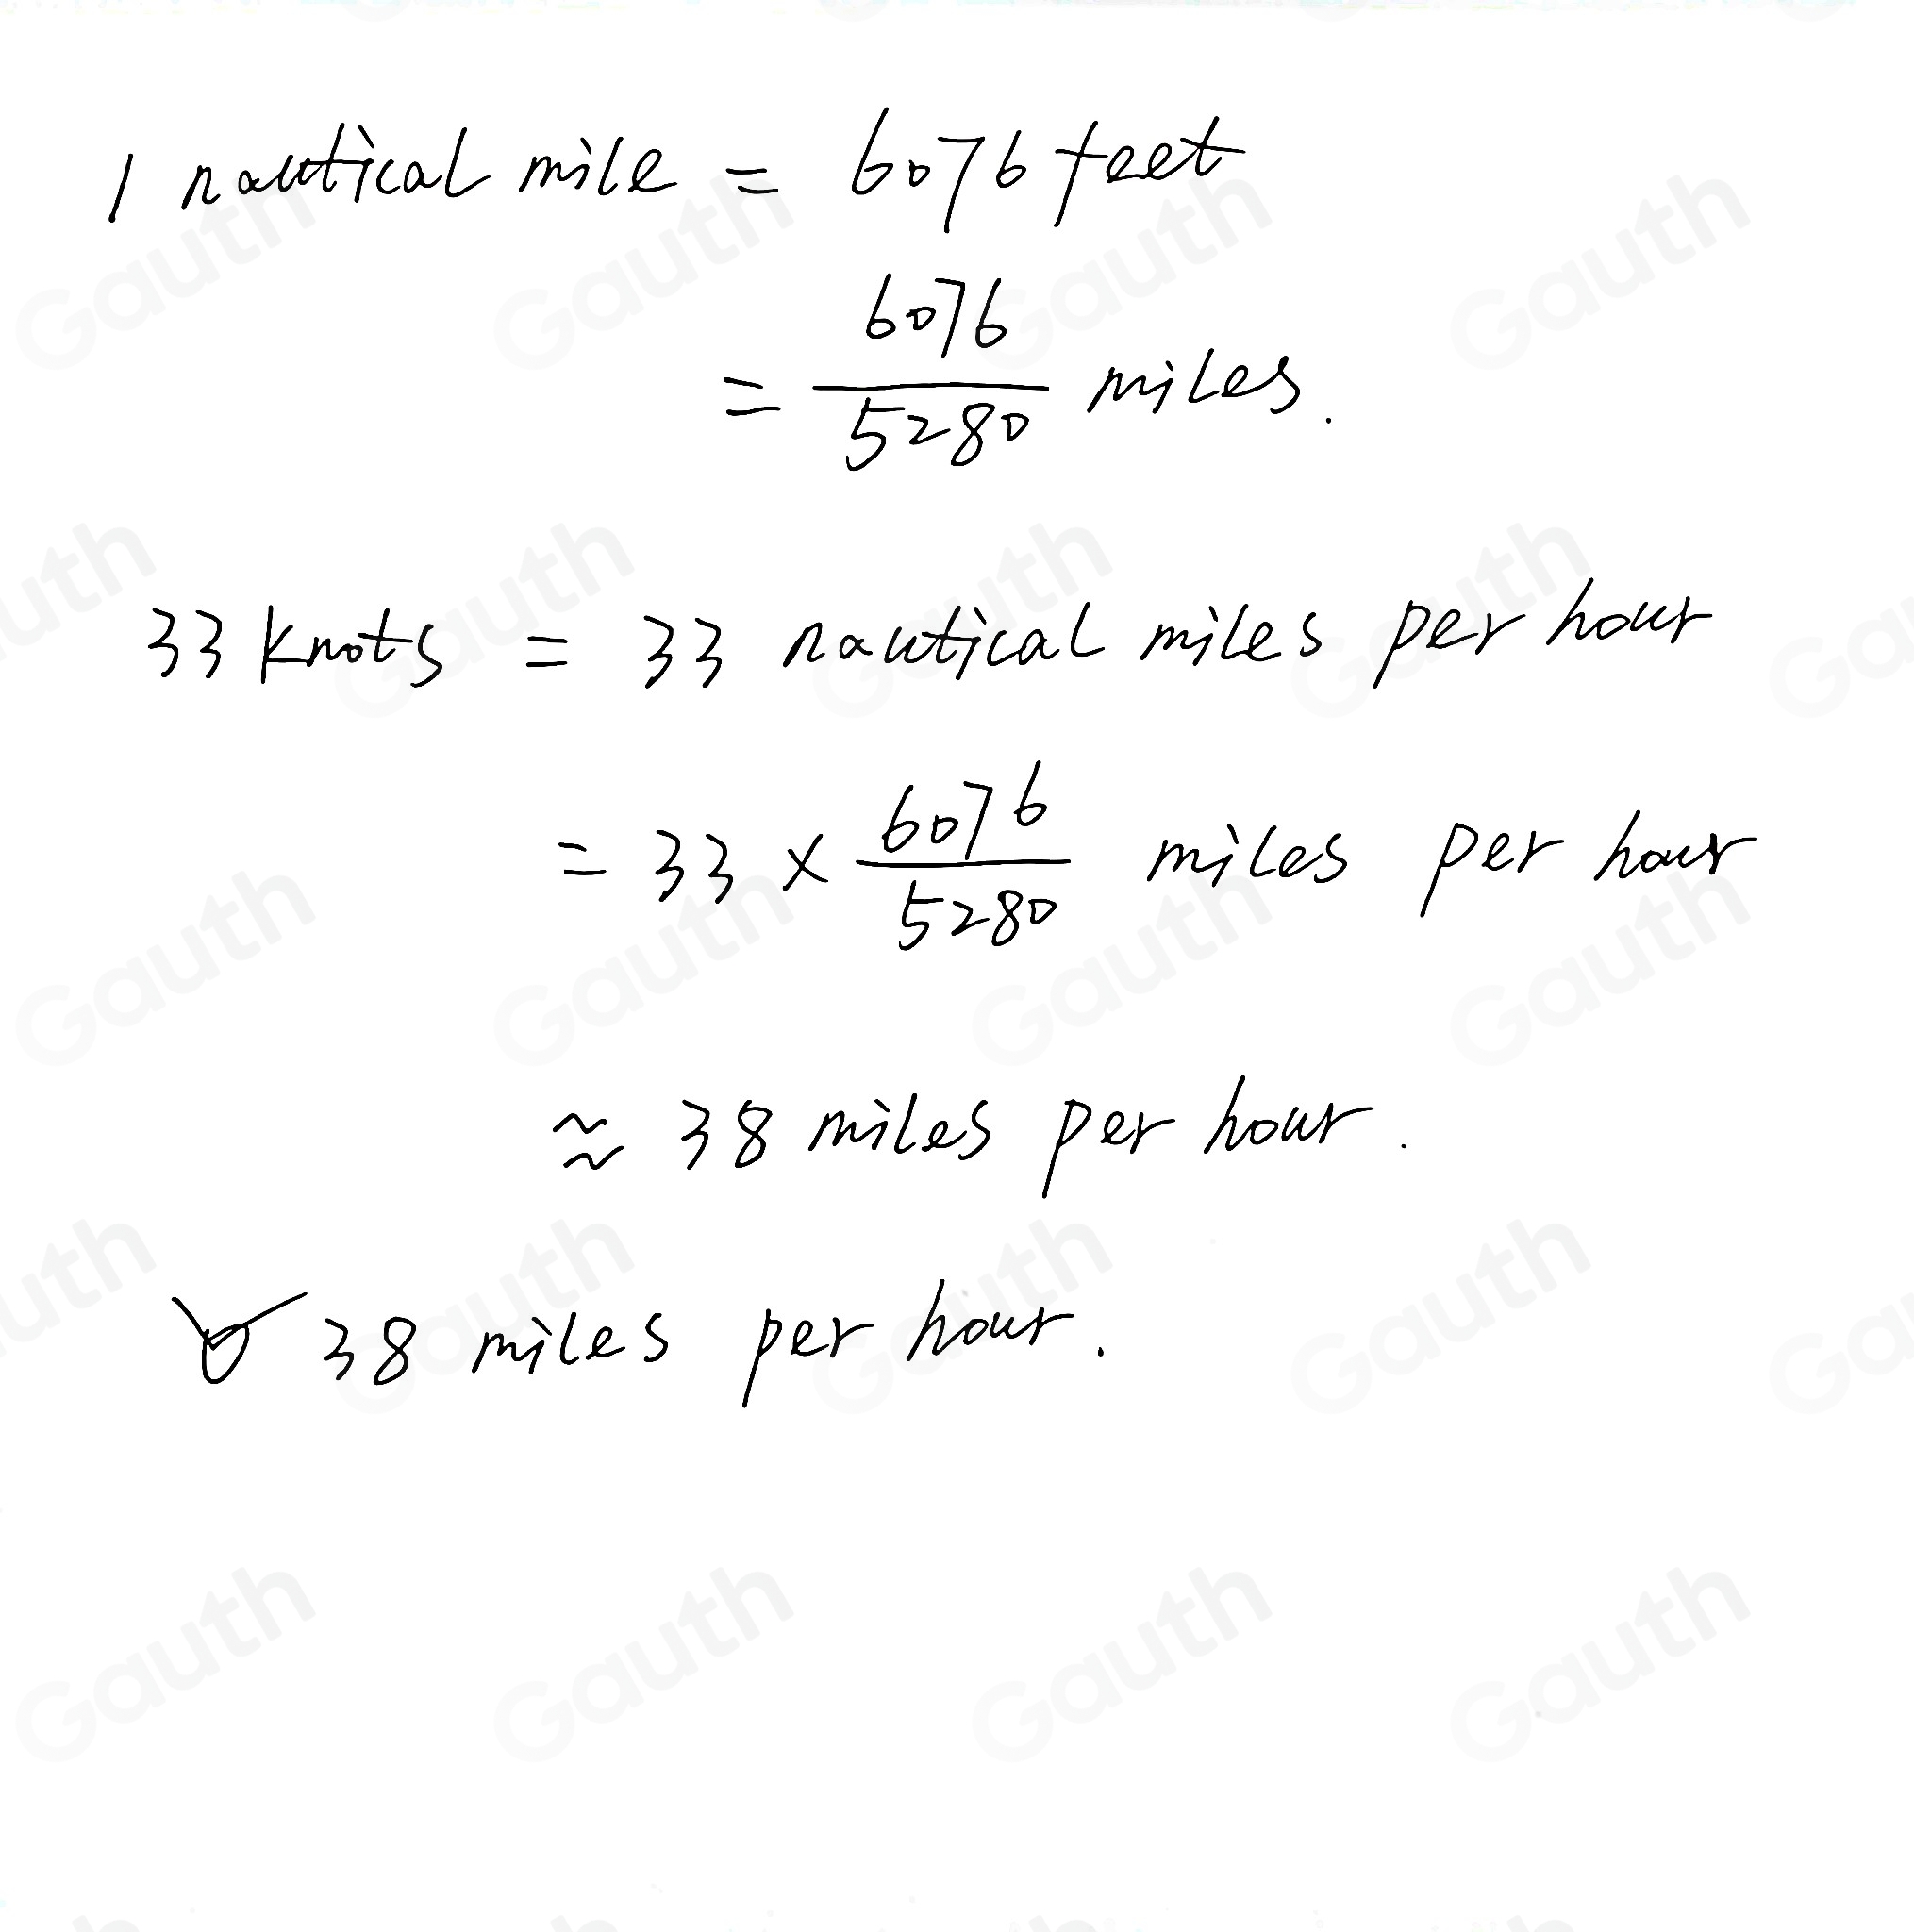 1 nautical mile = 6076 feet
= 6076/5280 miles.
33 knots = 33 nautical miles per hour
= 33 × 6076/5280 miles per hour
≈ 38 miles per hour.
38 miles per hour.
Gauth